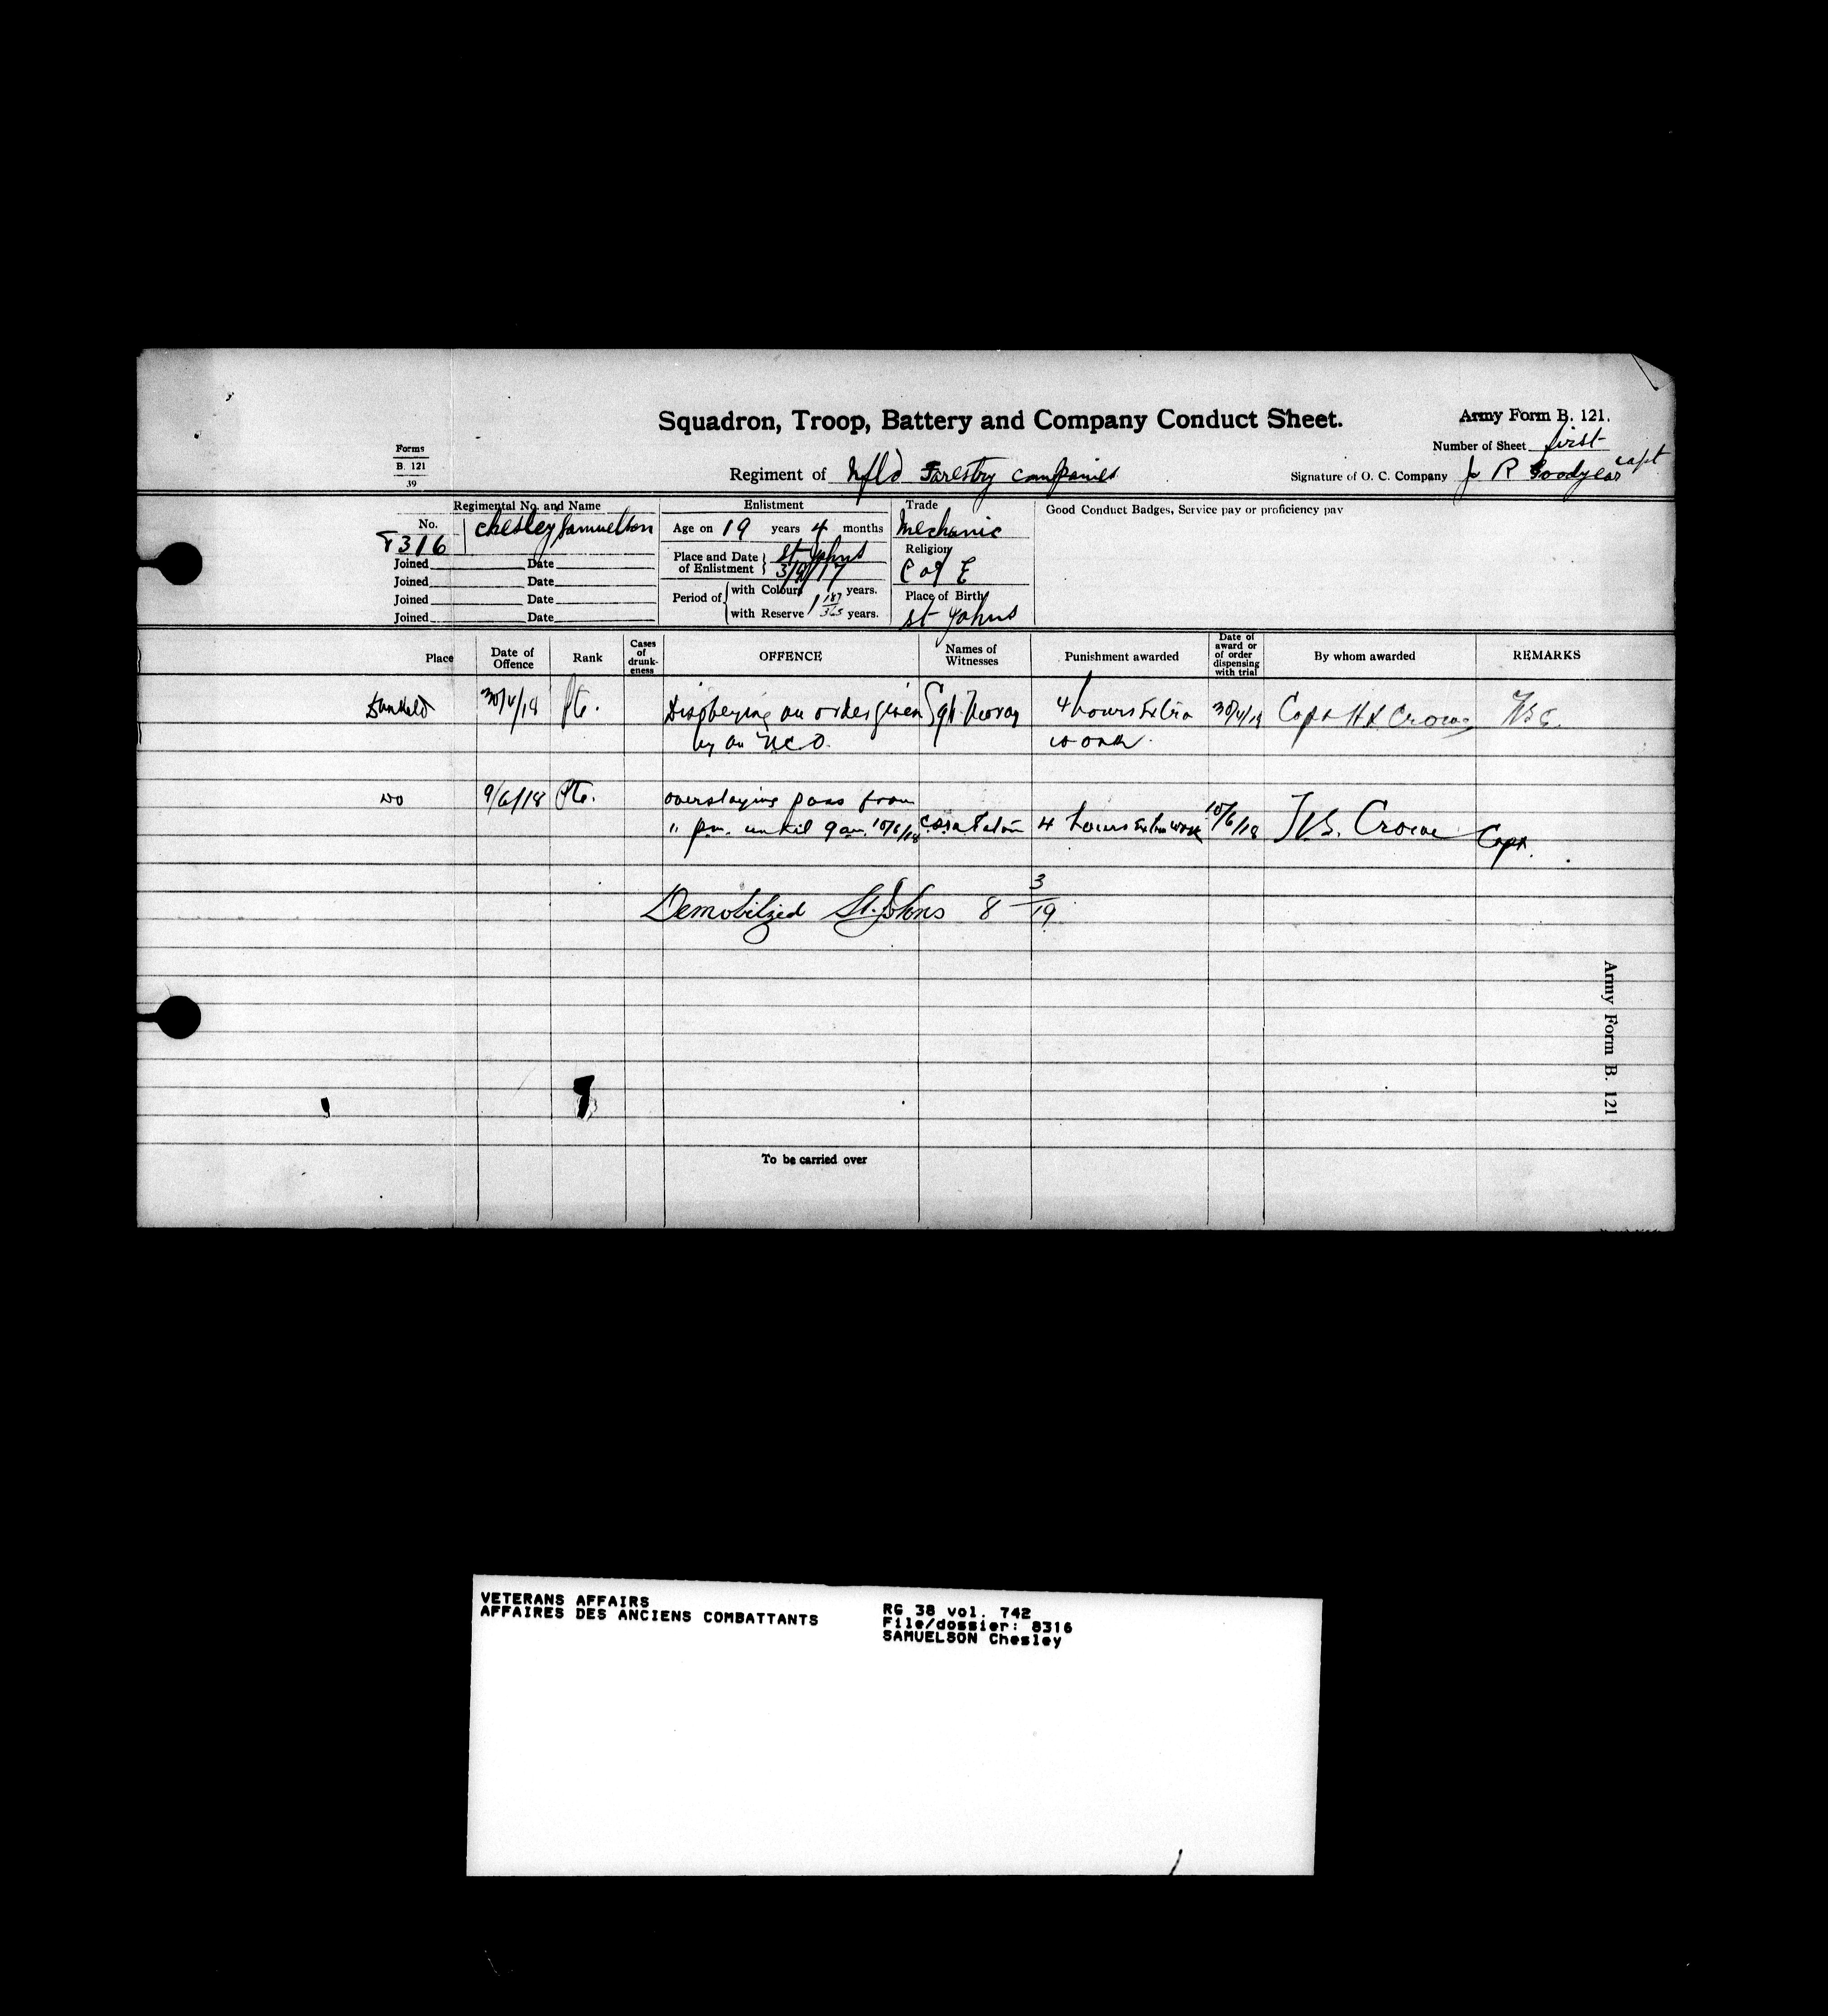 Squadron, Troop, Battery and Company Conduct Sheet.
Army Form B. 121.
Forms
B. 121
39
Number of Sheet first
Regiment of Nfld Forestry Companies
Signature of O. C. Company J R Goodyear Capt
Regimental No. and Name
No.
8316
Chesley Samuelson
Joined Date
Joined Date
Joined Date
Joined Date
Enlistment
Age on 19 years 4 months
Place and Date of Enlistment St Johns
3/9/17
Period of with Colours years.
with Reserve 1 187/365 years.
Trade
Mechanic
Religion
C of E
Place of Birth
St Johns
Good Conduct Badges, Service pay or proficiency pay
Place
Date of Offence
Rank
Cases of drunk-eness
OFFENCE
Names of Witnesses
Punishment awarded
Date of award or of order dispensing with trial
By whom awarded
REMARKS
Dunkeld 30/4/18 Pte. Disobeying an order given Sgt 4 hours Extra 30/4/18 Capt Crowe
by an NCO. work.
Do 9/6/18 Pte. overstaying pass from
pm. until 9 am. 10/6/18 4 hours Extra work 10/6/18 Crowe Capt.
Demobilzed St. Johns 8 3/19
Army Form B. 121
To be carried over
VETERANS AFFAIRS
AFFAIRES DES ANCIENS COMBATTANTS
RG 38 vol. 742
File/dossier: 8316
SAMUELSON Chesley